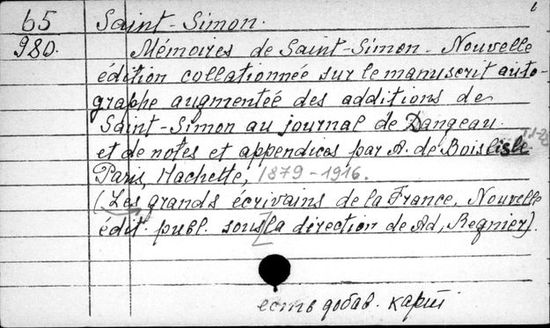 65 Saint-Simon. 6
980. Mémoires de Saint-Simon. Nouvelle
édition collationnée sur le manuscrit auto-
graphe augmenteé des additions de
Saint-Simon au journal de Dangeau
et de notes et appendices par A. de Boislisle T.1-28
Paris, Hachette, 1879-1916.
(Les grands écrivains de la France. Nouvelle
édit. publ. sous la direction de Ad, Regnier).
есть добав. карт